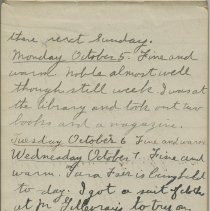 there next Sunday.
Monday October 5. Fine and
warm. Noble almost well
though still weak. I was at
the library and took out two
books and a magazine.
Tuesday October 6 Fine and warm
Wednesday October 7. Fine and
warm. Tara Fair is being held
to day. I got a suit of clothes
at Mr. to try on